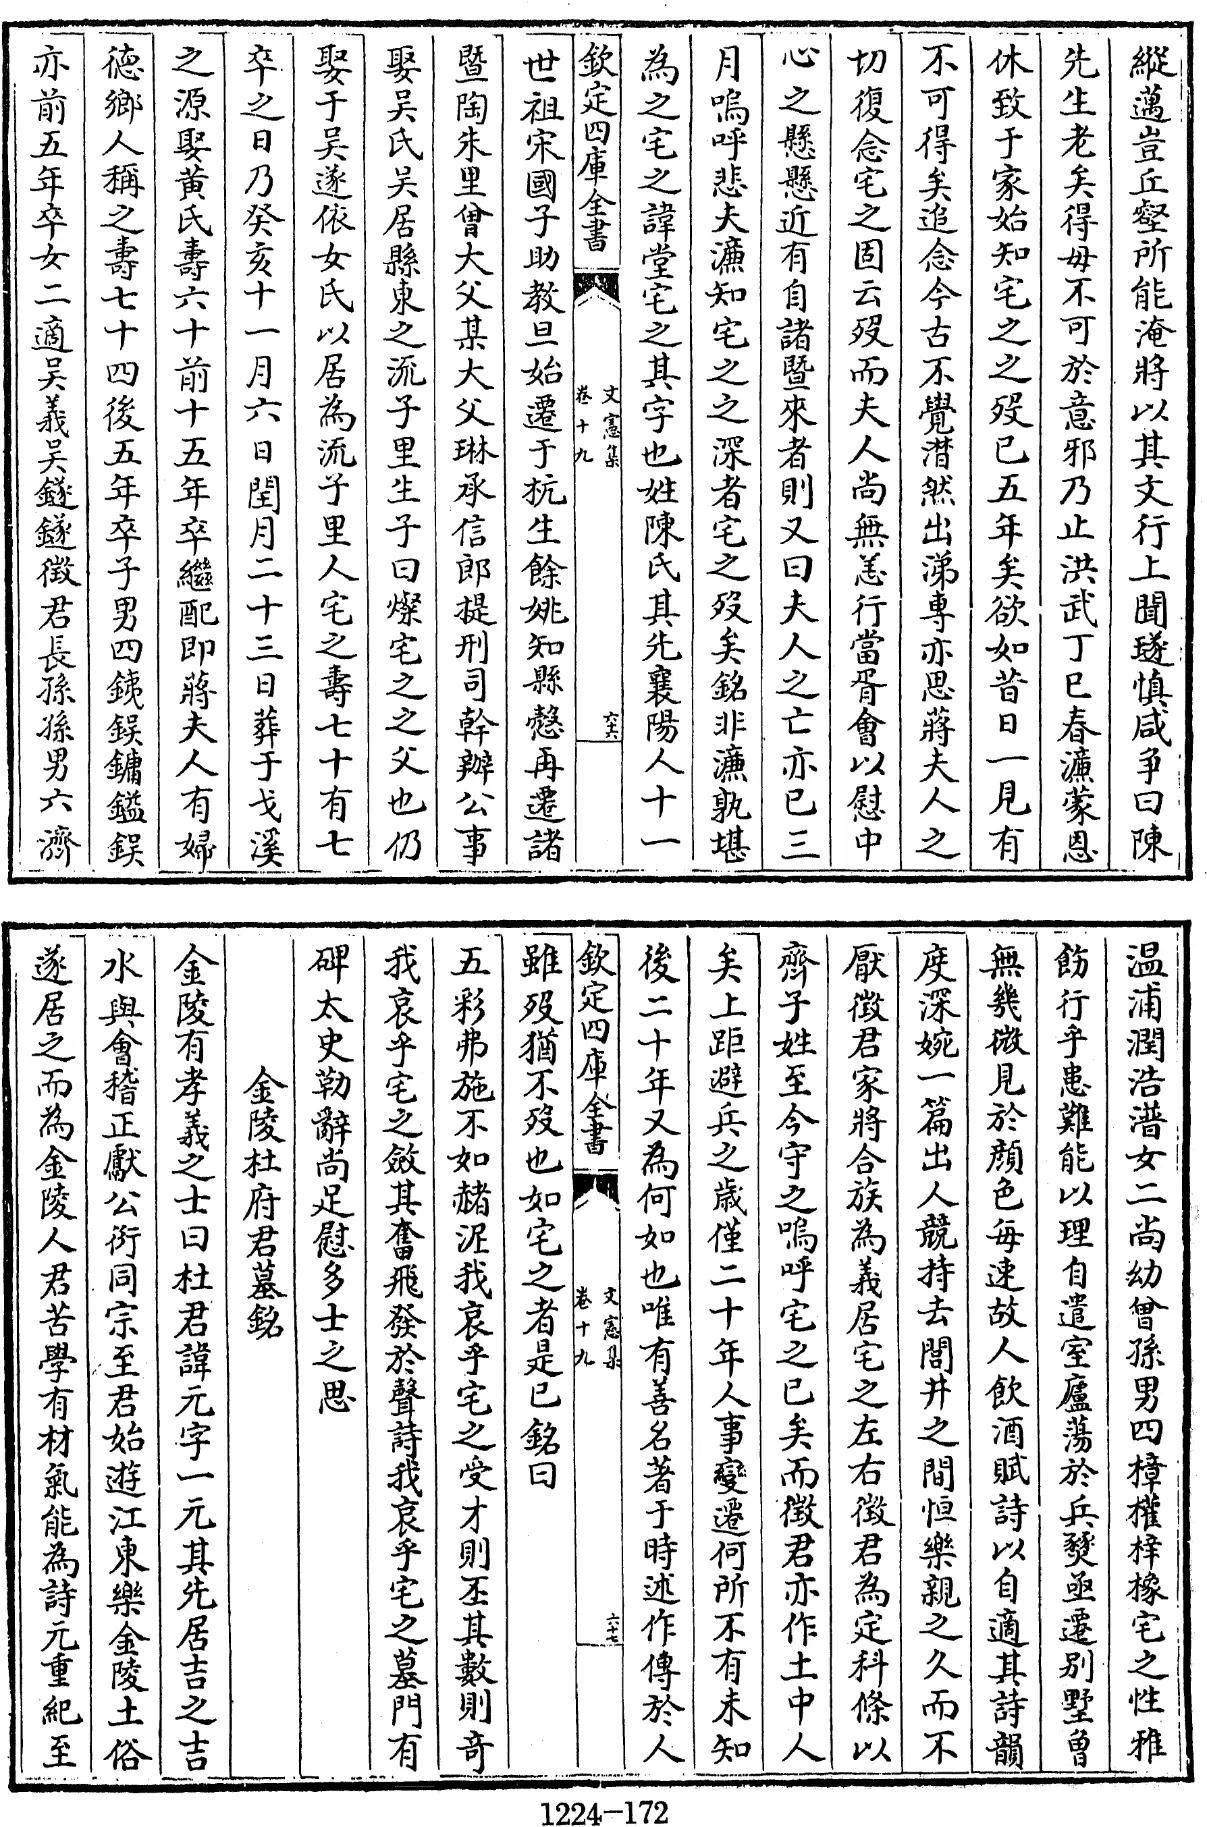 縱邁豈丘壑所能淹將以其文行上聞璲慎咸争曰陳
先生老矣得毋不可於意邪乃止洪武丁巳春濂蒙恩
休致于家始知宅之之歿已五年矣欲如昔日一見有
不可得矣追念今古不覺潸然出涕專亦思蔣夫人之
切復念宅之固云歿而夫人尚無恙行當胥會以慰中
心之懸懸近有自諸暨來者則又曰夫人之亡亦已三
月嗚呼悲夫濂知宅之之深者宅之歿矣銘非濂孰堪
為之宅之諱堂宅之其字也姓陳氏其先襄陽人十一
欽定四庫全書
文憲集
卷十九
六十六
世祖宋國子助教旦始遷于杭生餘姚知縣慤再遷諸
暨陶朱里曾大父某大父琳承信郎提刑司幹辦公事
娶吳氏吳居縣東之流子里生子曰燦宅之之父也仍
娶于吳遂依女氏以居為流子里人宅之壽七十有七
卒之日乃癸亥十一月六日閏月二十三日葬于戈溪
之源娶黄氏壽六十前十五年卒繼配即蔣夫人有婦
德鄉人稱之壽七十四後五年卒子男四銕鋘鏞鎰鋘
亦前五年卒女二適吳義吳鐩鐩徵君長孫孫男六濟
温浦潤浩溍女二尚幼曾孫男四樟權梓橡宅之性雅
飭行乎患難能以理自遣室廬蕩於兵燹亟遷别墅曾
無幾微見於顔色每速故人飲酒賦詩以自適其詩韻
度深婉一篇出人競持去閭井之間恒樂親之久而不
厭徵君家將合族為義居宅之左右徵君為定科條以
齊子姓至今守之嗚呼宅之已矣而徵君亦作土中人
矣上距避兵之歳僅二十年人事變遷何所不有未知
後二十年又為何如也唯有善名著于時述作傳於人
欽定四庫全書
文憲集
卷十九
六十七
雖歿猶不歿也如宅之者是已銘曰
五彩弗施不如赭泥我哀乎宅之受才則丕其數則奇
我哀乎宅之斂其奮飛發於聲詩我哀乎宅之墓門有
碑太史勒辭尚足慰多士之思
金陵杜府君墓銘
金陵有孝義之士曰杜君諱元字一元其先居吉之吉
水與會稽正獻公衍同宗至君始遊江東樂金陵土俗
遂居之而為金陵人君苦學有材氣能為詩元重紀至
1224—172